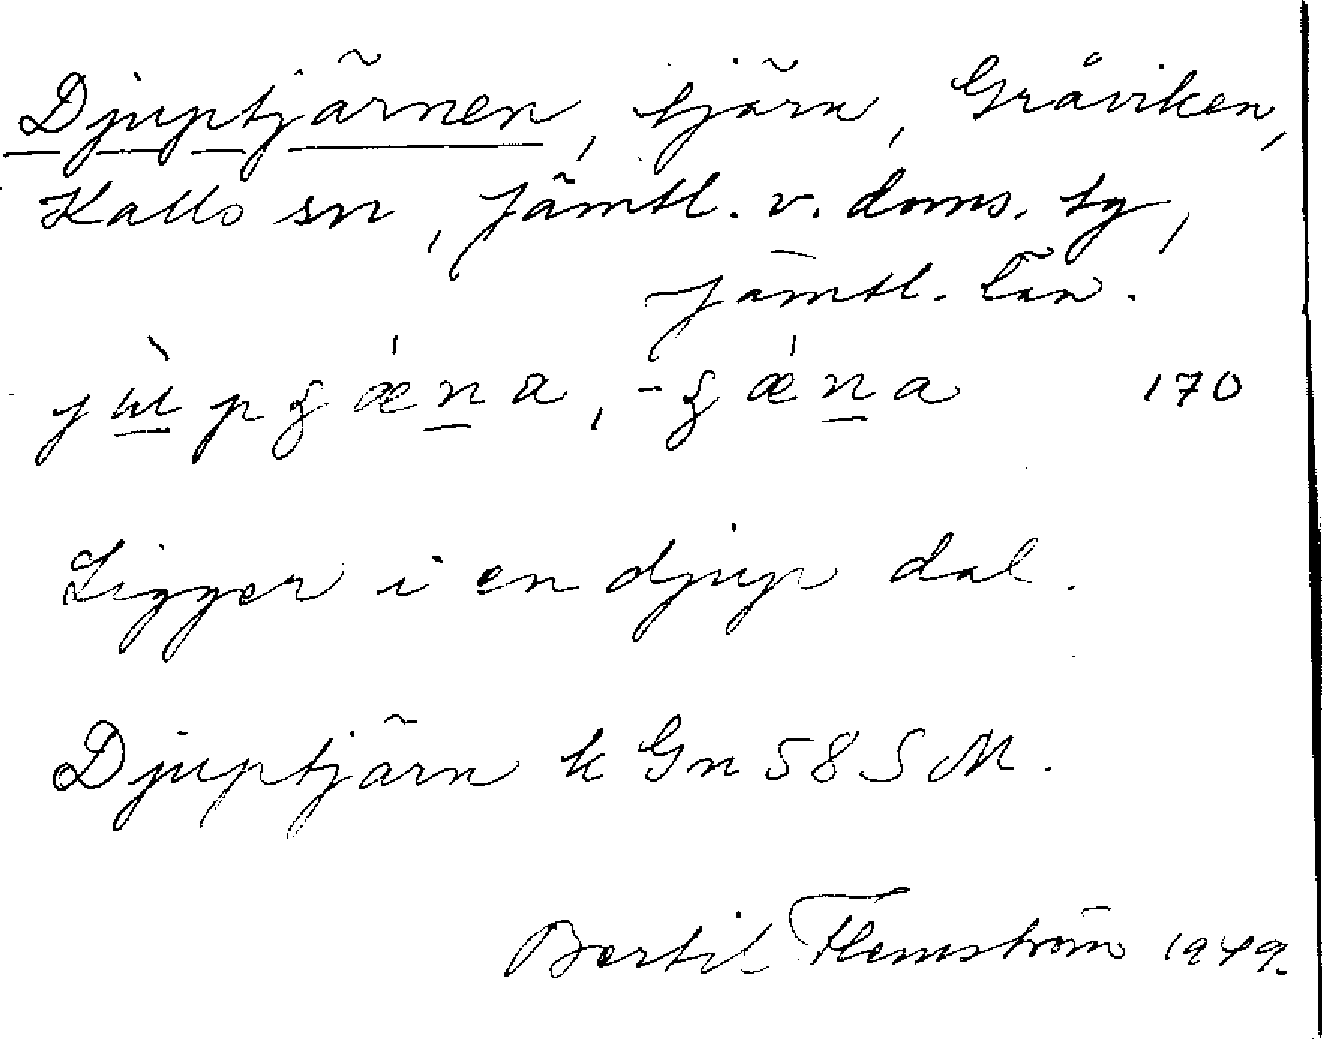 Djuptjärnen, tjärn, Gråviken,
Kalls sn, Jämtl. v. doms. tg,
Jämtl. län.
170
Ligger i en djup dal.
Djuptjärn k Gn 58 S M.
Bertil Flemström 1949.